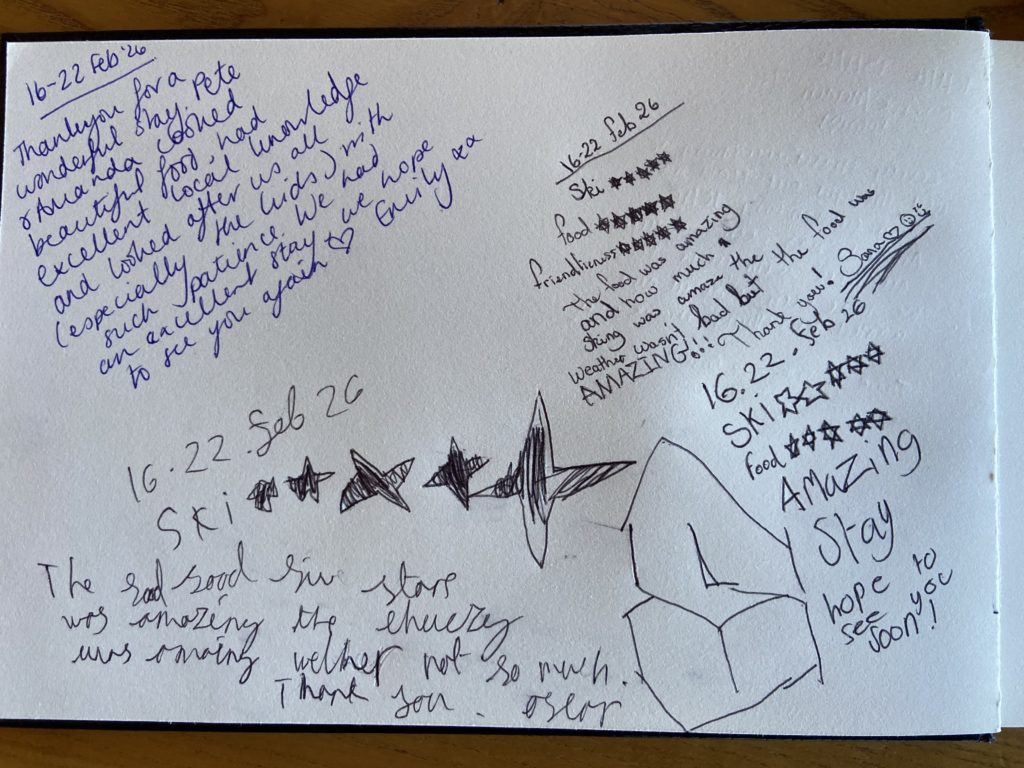 16-22 Feb '26
Thankyou for a
wonderful stay. Pete
& Amanda cooked
beautiful food, had
excellent local knowledge
and looked after us all
(especially the kids) with
such patience. We had
an excellent stay & we hope
to see you again ♡ Emily xx
16-22 Feb 26
Ski ★★★★★
food ★★★★★
friendlieness ★★★★★
The food was amazing
and how much
skiing was amaze the
Weather wasn't bad but the food was
AMAZING!!! Thank you! Sana ♡ ☹ ☺
16.22.feb 26
Ski ★★★★★
The food five stars
was amazing the
was amaing wether not so much.
Thank you. oscar
16.22.feb 26
SKi ☆☆★★★
food ★★★★★
AMaZing
Stay
hope to
see you
soon!